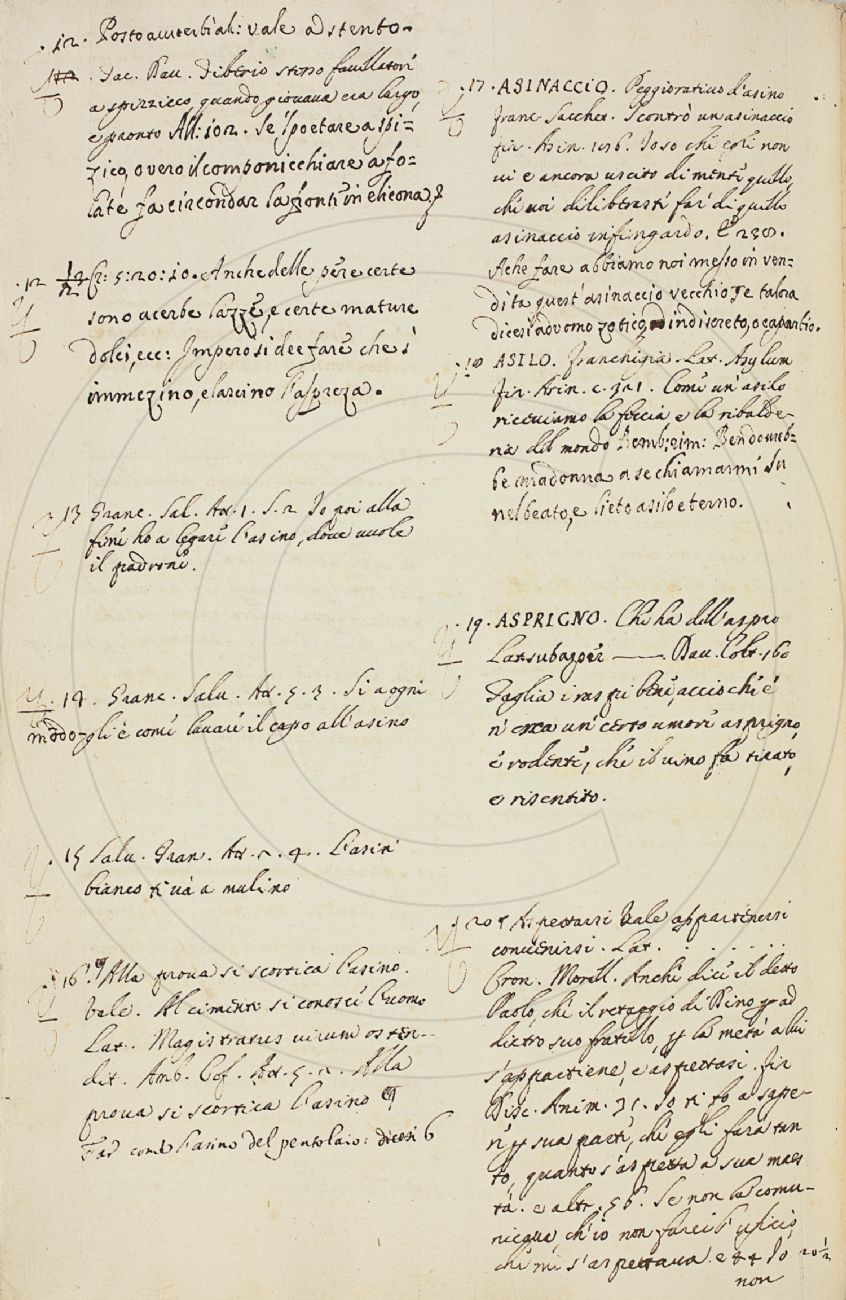 12. Posto avverbial: vale a dstento.
Iac. Dav. Tiberio stesso favellatori
a spizzico, quando giovava era largo,
e pronto All: 102. Se spoetare a spi=
zico, o vero il componicchiare a fo=
late fa circondar la fonte in elicona,
12 Cr: 5: 20: 10. Anche delle pere certe
sono acerbe lazze, e certe mature
dolci, ecc: Imperò si dee fare che s'
immezino, e lascino l'asprezza.
13 Granc. Sal. At. 1. S. 2 Io poi alla
fine ho a legare l'asino, dove vuole
il padrone.
14. Granc. Salv. At. 5. 3. Si a ogni
modo gli è come lavare il capo all'asino
15 Salv. Gran. At. 2. 4. L'asin
bianco ti và a mulino
16. Alla prova si scortica l'asino.
Vale. Al cimento si conosce l'uomo
Lat. Magistratus virum osten-
dit. Amb. Cof. At. 5. 2. Alla
prova si scortica l'asino
Far come l'asino del pentolaio: dicesi 6
17. ASINACCIO. Peggiorativo d'asino
Franc. Sacchet. Scontrò un asinaccio
fir. Asin. 196. Io so che egli non
vi è ancora uscito di mente quello,
che voi diliberaste far di quello
asinaccio infingardo. E 238.
A che fare abbiamo noi messo in ven-
dita quest'asinaccio vecchio, e talora
dicesi ad uomo zotico, indiscreto, o caparbio.
18 ASILO. Franchigia. Lat. Asylum
fir. Asin. c. 321. Come un asilo
riceviamo la feccia e la ribalde-
ria del mondo Bemb: rim: Ben dovreb=
be madonna a se chiamarmi su
nel beato, e lieto asilo eterno.
19. ASPRIGNO. Che ha dell'aspro
Lat. subasper —— Dav. Colt. 160
Taglia i raspi bene, acciochè
n'esca un certo umore asprigno,
e rodente, che il vino fa tirato,
e risentito.
20 Aspettarsi Vale appartenersi
convenirsi. Lat. . . . . . .
Cron. Morell. Anche dice il detto
Paolo, che il retaggio di Dino ad
dietro suo fratello, la metà a lui
s'appartiene, e aspettasi. fir
Disc. Anim. 31. Io ti fo a sape-
re sua parte, che egli farà tan
to, quanto s'aspetta a sua maes
tà. e altr. 56. Se non la comu-
nicque, ch'io non farei l'uficio,
che mi s'aspettava. e 44 Io 20 1/2
non